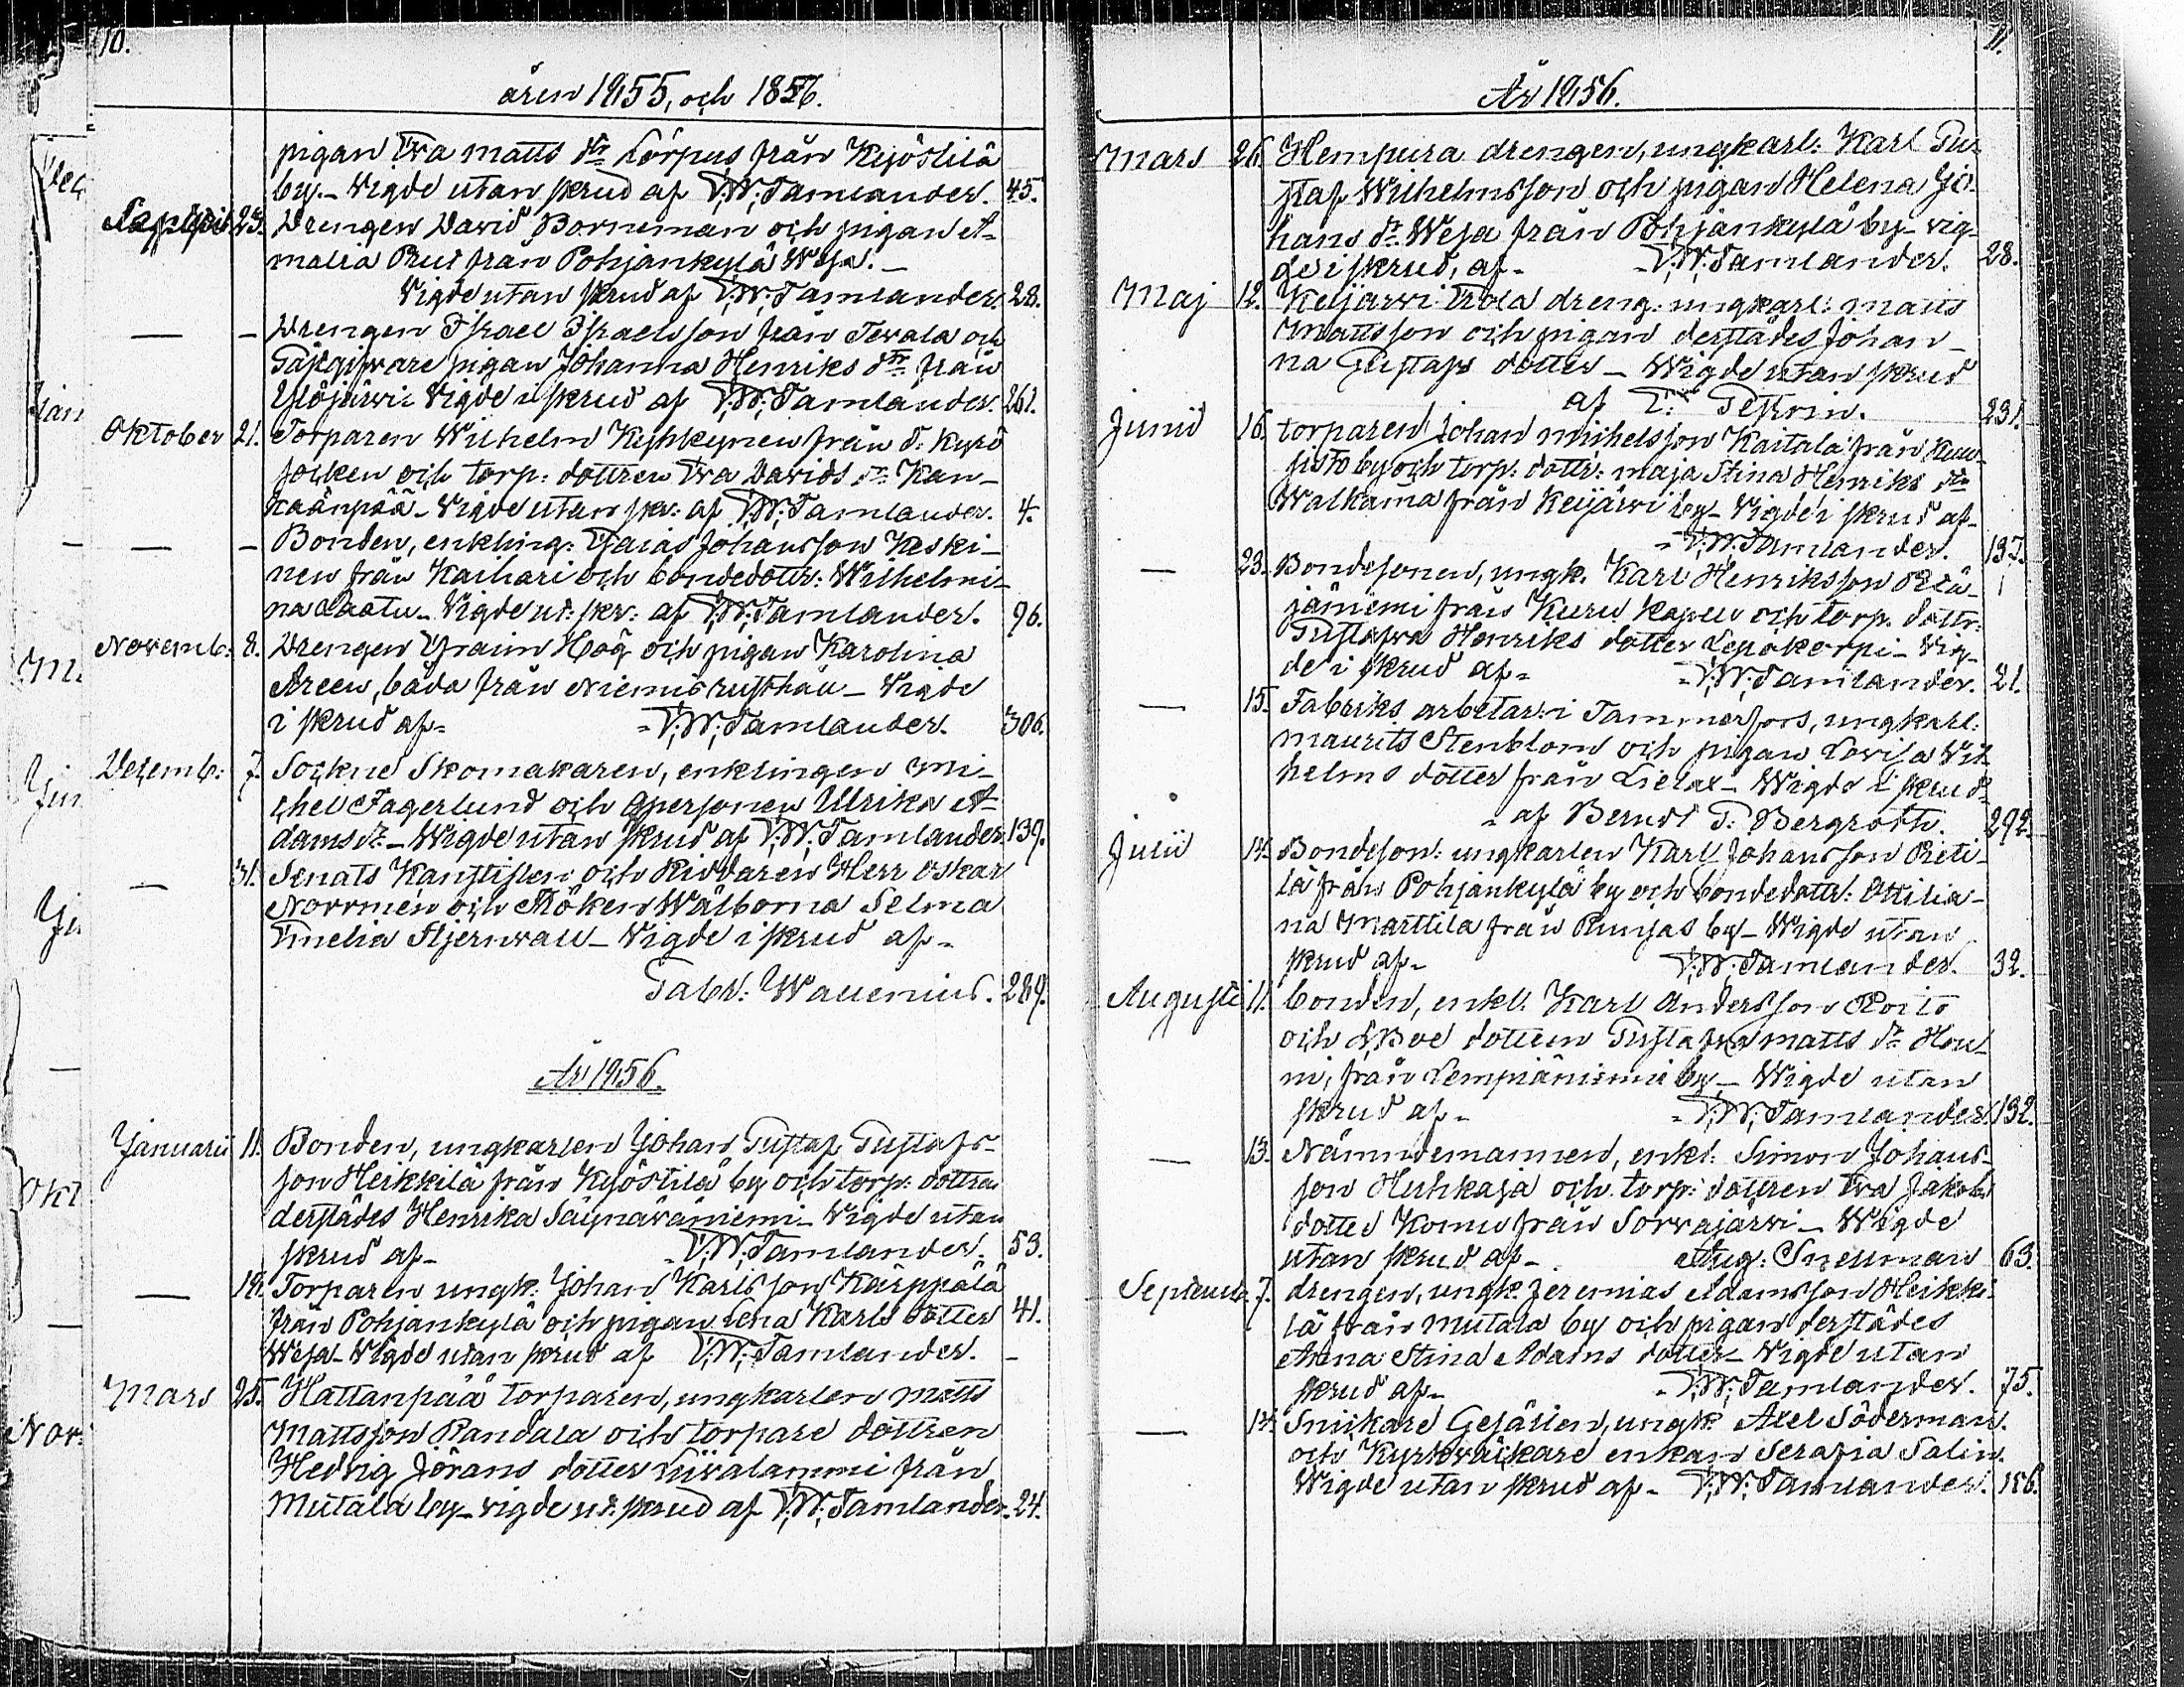 10.
åren 1855, och 1856.
pigan Eva Matts dr Lörpus från Keijöstilä
by. Vigde utan skrud af E. W. Tamlander. 45.
23. Drengen David Borneman och pigan A-
malia Prut från Pohjankylä Wesa.
Vigde utan skrud af E. W. Tamlander. 28.
— — Drengen Israel Israelsson från Tevala och
Gästgifvare pigan Johanna Henriks dtr från
Ylöjärvi Vigde i skrud af E. W. Tamlander. 261.
Oktober 21. Torparen Wilhelm Kyhkynen från T. Kyrö
socken och torp: dottren Eva Davids dr Kan-
kaänpää - Vigde utan skr: af E. W. Tamlander. 4.
— — Bonden, enkling: Esaias Johansson Keski-
nen från Kaihari och bondedottr: Wilhelmi-
na Laatu - Vigde ut: skr: af E. W. Tamlander. 96.
Novemb: 8. Drengen Efraim Hög och pigan Karolina
Areen, båda från Niemis rusthåll - Vigde
i skrud af - E. W. Tamlander. 306.
Desemb: 7. Sockne Skomakaren, enklingen Mi-
chel Fagerlund och qpersonen Ulrika A-
dams dr - Wigde utan skrud af E. W. Tamlander 139.
— 31. Senats Kanslisten och Riddaren Herr Oskar
Norrmén och Fröken Wälborna Selma
Emelia Stjernvall - Vigde i skrud af -
Gabr: Wallenius. 289.
År 1856.
Januarii 11. Bonden, ungkarlen Johan Gustaf Gustafs-
son Heikkilä från Kyöstilä by och torp: dottren
derstädes Henrika Säynäväniemi - Vigde utan
skrud af - E. W. Tamlander. 53.
— 18. Torparen ungk: Johan Karlsson Kärppälä
från Pohjankylä och pigan Lena Karls dotter 41.
Wesa - Vigde utan skrud af E. W. Tamlander. —
Mars 25. Hattanpää torparen, ungkarlen Matts
Mattsson Randala och torpare dottren
Hedvig Jörans dotter Liivalammi från
Mutala by - vigde ut: skrud af E. W. Tamlander. 24.
11.
År 1856.
Mars 26. Hempura drengen, ungkarl: Karl Gu-
staf Wilhelmsson och pigan Helena Jo-
hans dr Wesa från Pohjankylä by - vig-
de i skrud, af - E. W. Tamlander. 28.
Maj 12. Keijärvi Erola dreng: ungkarl: Matts
Mattsson och pigan derstädes Johan-
na Gustafs dotter - Wigde utan skrud
af E: Teskrin. 231.
Junii 16. torparen Johan Michelsson Kaitala från Kuu-
sisto by och torp: dottr: Maja Stina Henriks dtr
Walkama från Keijärvi by - Vigde i skrud af -
E. W. Tamlander. 137.
— 23. Bondesonen, ungk. Karl Henriksson Pelä-
jäniemi från Kuru kapell och torp. dottr:
Gustafva Henriks dotter Lepäkorpi - Vig-
de i skrud af - E. W. Tamlander. 21.
— 15. Fabriks arbetar: i Tammerfors, ungkarl:
Maurits Stenblom och pigan Lovisa Wil-
helms dotter från Lielax - Wigde i skrud
af Berndt G. Bergroth. 292.
Julii 14. Bondeson: ungkarlen Karl Johansson Pieti-
lä från Pohjankylä by och bondedottr: Ottilia-
na Marttila från Runsas by - Wigde utan
skrud af - E. W. Tamlander. 32.
Augusti 11. bonden, enkl: Karl Andersson Roito
och dottern Gustafva Matts dr Hou-
ni, från Lempiäniemi by - Wigde utan
skrud af - E. W. Tamlander. 132.
— 13. Nämndemannen, enkl: Simon Johans-
son Huhkaja och torp: dottren Eva Jakobs
dotter Komu från Sorvajärvi - Wigde
utan skrud af - Aug: Snellman 63.
Septemb. 7. drengen, ungk: Jeremias Adamsson Heikki-
lä från Mutala by och pigan derstädes
Anna Stina Adams dotter - Vigde utan
skrud af - E. W. Tamlander. 75.
— 14. Snickare Gesällen, ungk: Axel Söderman
och Kyrkväckare enkan Serafia Salin.
Wigde utan skrud af - E. W. Tamlander. 186.